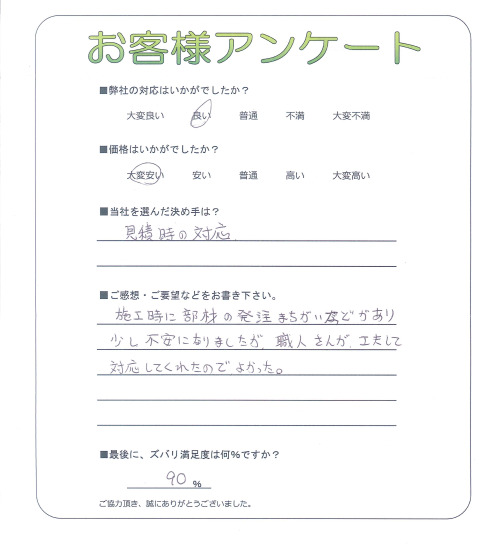 お客様アンケート
■弊社の対応はいかがでしたか？
大変良い 良い 普通 不満 大変不満
■価格はいかがでしたか？
大変安い 安い 普通 高い 大変高い
■当社を選んだ決め手は？
見積時の対応
■ご感想・ご要望などをお書き下さい。
施工時に部材の発注まちがいなどがあり
少し不安になりましたが、職人さんが、工夫して
対応してくれたのでよかった。
■最後に、ズバリ満足度は何%ですか？
90 %
ご協力頂き、誠にありがとうございました。